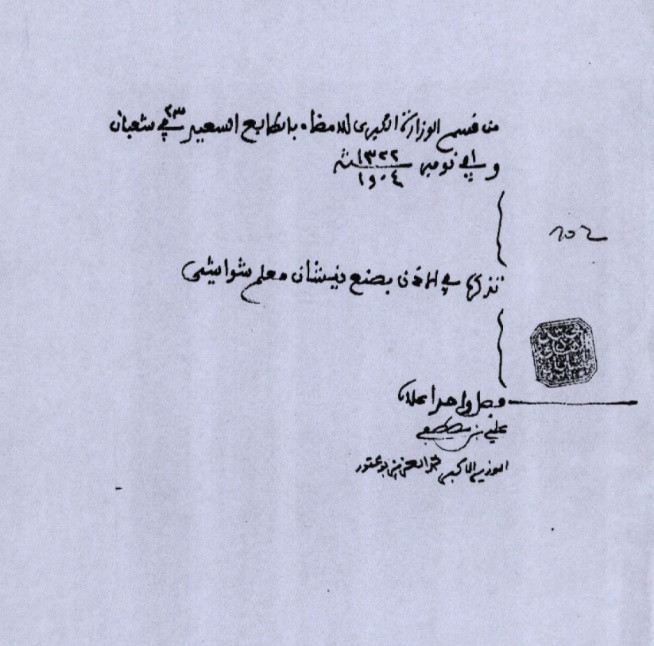 من قسم الوزارة الكبرى للامضاء بالطابع السعيد في ٢٣ شعبان
و في نومبر ١٣٢٢ سنة
١٩٠٤
تذكرة في الاذن بصنع نيشان معلم شواشي
فصل واحد
علي بن مصطفى
الوزير الاكبر محمد العزيز بوعتور